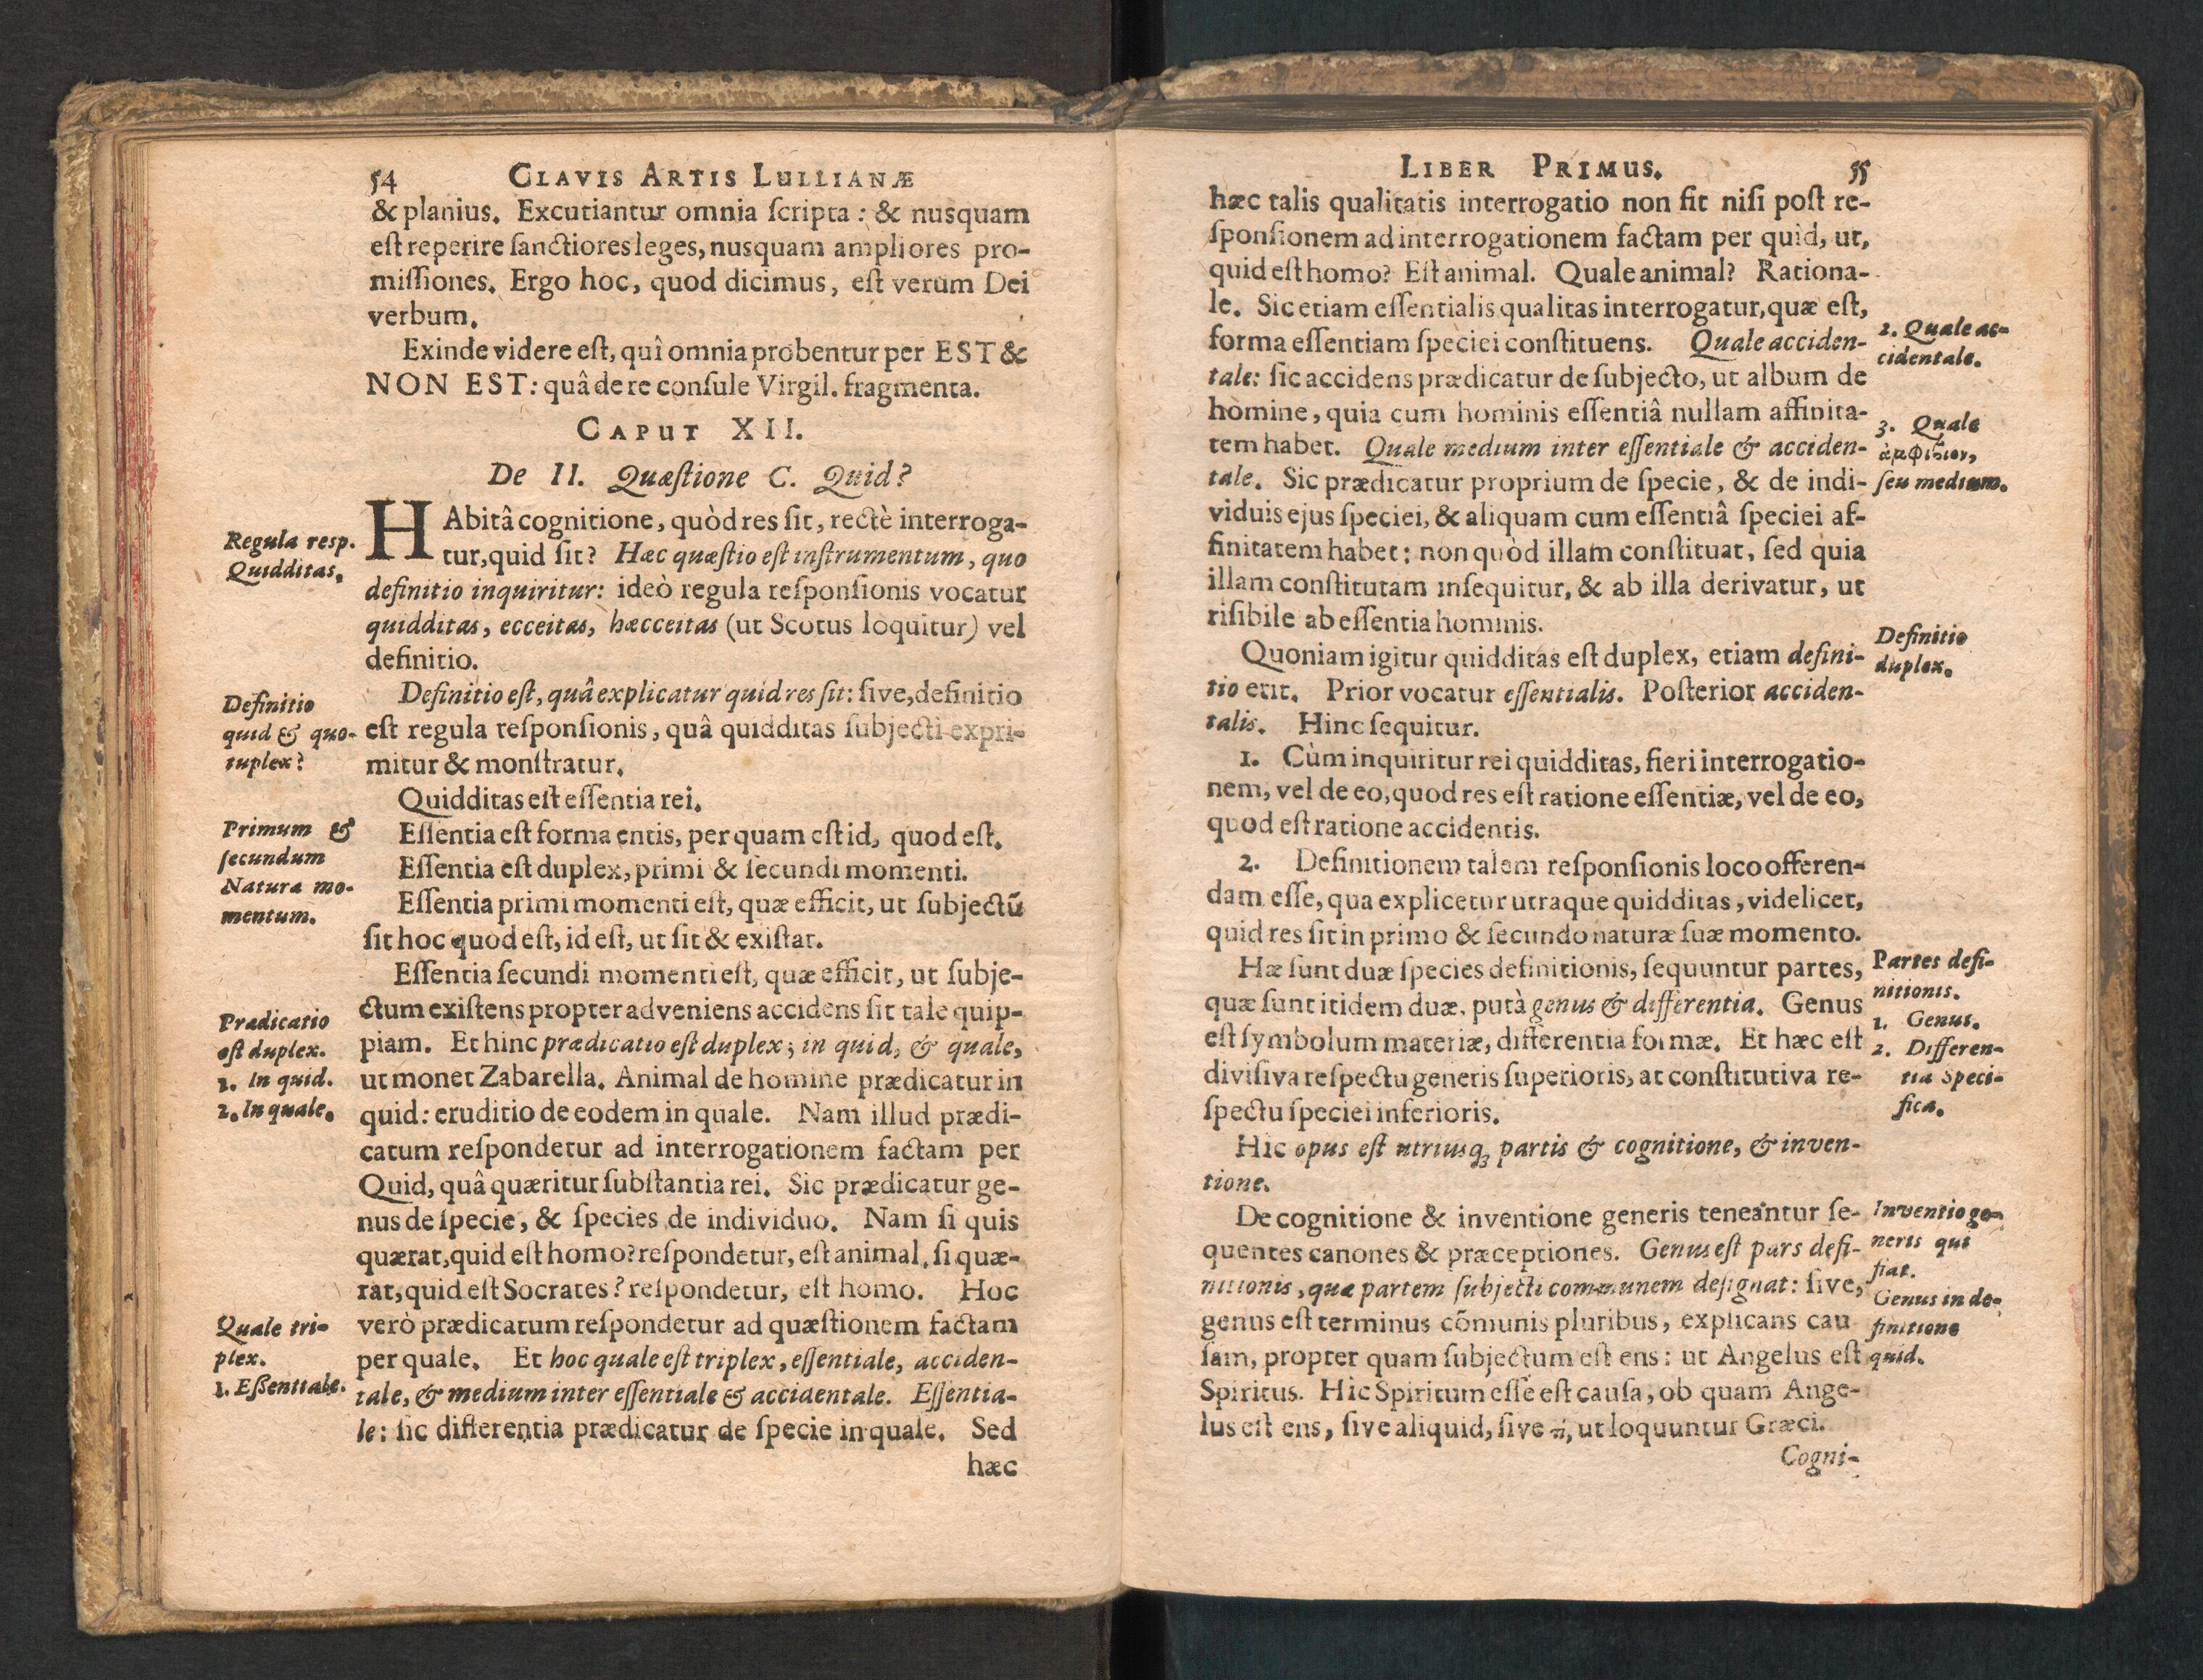 54 CLAVIS ARTIS LULLIANÆ
& planius. Excutiantur omnia ſcripta: & nusquam
eſt reperire ſanctiores leges, nusquam ampliores pro-
miſſiones. Ergo hoc, quod dicimus, eſt verum Dei
verbum.
Exinde videre eſt, quî omnia probentur per EST &
NON EST: quâ de re conſule Virgil. fragmenta.
CAPUT XII.
De II. Quæſtione C. Quid?
HAbitâ cognitione, quòd res ſit, rectè interroga-
tur, quid ſit? Hæc quæſtio eſt inſtrumentum, quo
definitio inquiritur: ideò regula reſponſionis vocatur
quidditas, ecceitas, hæcceitas (ut Scotus loquitur) vel
definitio.
Definitio eſt, quâ explicatur quid res ſit: ſive, definitio
eſt regula reſponſionis, quâ quidditas ſubjecti expri-
mitur & monſtratur.
Quidditas eſt eſſentia rei.
Eſſentia eſt forma entis, per quam eſt id, quod eſt.
Eſſentia eſt duplex, primi & ſecundi momenti.
Eſſentia primi momenti eſt, quæ efficit, ut ſubjectũ
ſit hoc quod eſt, id eſt, ut ſit & exiſtat.
Eſſentia ſecundi momenti eſt, quæ efficit, ut ſubje-
ctum exiſtens propter adveniens accidens ſit tale quip-
piam. Et hinc prædicatio eſt duplex; in quid, & quale,
ut monet Zabarella. Animal de homine prædicatur in
quid: eruditio de eodem in quale. Nam illud prædi-
catum reſpondetur ad interrogationem factam per
Quid, quâ quæritur ſubſtantia rei. Sic prædicatur ge-
nus de ſpecie, & ſpecies de individuo. Nam ſi quis
quærat, quid eſt homo? reſpondetur, eſt animal, ſi quæ-
rat, quid eſt Socrates? reſpondetur, eſt homo. Hoc
verò prædicatum reſpondetur ad quæſtionem factam
per quale. Et hoc quale eſt triplex, eſſentiale, acciden-
tale, & medium inter eſſentiale & accidentale. Eſſentia-
le: ſic differentia prædicatur de ſpecie in quale. Sed
hæc
Regula resp.
Quidditas.
Definitio
quid & quo-
tuplex?
Primum &
ſecundum
Natura mo-
mentum.
Prædicatio
eſt duplex.
1. In quid.
2. In quale.
Quale tri-
plex.
1. Eßentiale.
LIBER PRIMUS. 55
hæc talis qualitatis interrogatio non fit niſi poſt re-
ſponſionem ad interrogationem factam per quid, ut,
quid eſt homo? Eſt animal. Quale animal? Rationa-
le. Sic etiam eſſentialis qualitas interrogatur, quæ eſt,
forma eſſentiam ſpeciei conſtituens. Quale acciden-
tale: ſic accidens prædicatur de ſubjecto, ut album de
homine, quia cum hominis eſſentiâ nullam affinita-
tem habet. Quale medium inter eſſentiale & acciden-
tale. Sic prædicatur proprium de ſpecie, & de indi-
viduis ejus ſpeciei, & aliquam cum eſſentiâ ſpeciei af-
finitatem habet: non quòd illam conſtituat, ſed quia
illam conſtitutam inſequitur, & ab illa derivatur, ut
riſibile ab eſſentia hominis.
Quoniam igitur quidditas eſt duplex, etiam defini-
tio erit. Prior vocatur eſſentialis. Poſterior acciden-
talis. Hinc ſequitur.
1. Cùm inquiritur rei quidditas, fieri interrogatio-
nem, vel de eo, quod res eſt ratione eſſentiæ, vel de eo,
quod eſt ratione accidentis.
2. Definitionem talem reſponſionis loco offeren-
dam eſſe, qua explicetur utraque quidditas, videlicet,
quid res ſit in primo & ſecundo naturæ ſuæ momento.
Hæ ſunt duæ ſpecies definitionis, ſequuntur partes,
quæ ſunt itidem duæ, putà genus & differentia. Genus
eſt ſymbolum materiæ, differentia formæ. Et hæc eſt
diviſiva reſpectu generis ſuperioris, at conſtitutiva re-
ſpectu ſpeciei inferioris.
Hic opus eſt utriusq; partis & cognitione, & inven-
tione.
De cognitione & inventione generis teneantur ſe-
quentes canones & præceptiones. Genus eſt pars defi-
nitionis, quæ partem ſubjecti communem deſignat: ſive,
genus eſt terminus cõmunis pluribus, explicans cau
ſam, propter quam ſubjectum eſt ens: ut Angelus eſt
Spiritus. Hìc Spiritum eſſe eſt cauſa, ob quam Ange-
lus eſt ens, ſive aliquid, ſive τὶ, ut loquuntur Græci.
Cogni-
2. Quale ac-
cidentale.
3. Quale
ſeu medium.
Definitio
duplex.
Partes defi-
nitionis.
1. Genus.
2. Differen-
tia Speci-
fica.
Inventio ge-
neris qui
fiat.
Genus in de-
finitione
quid.